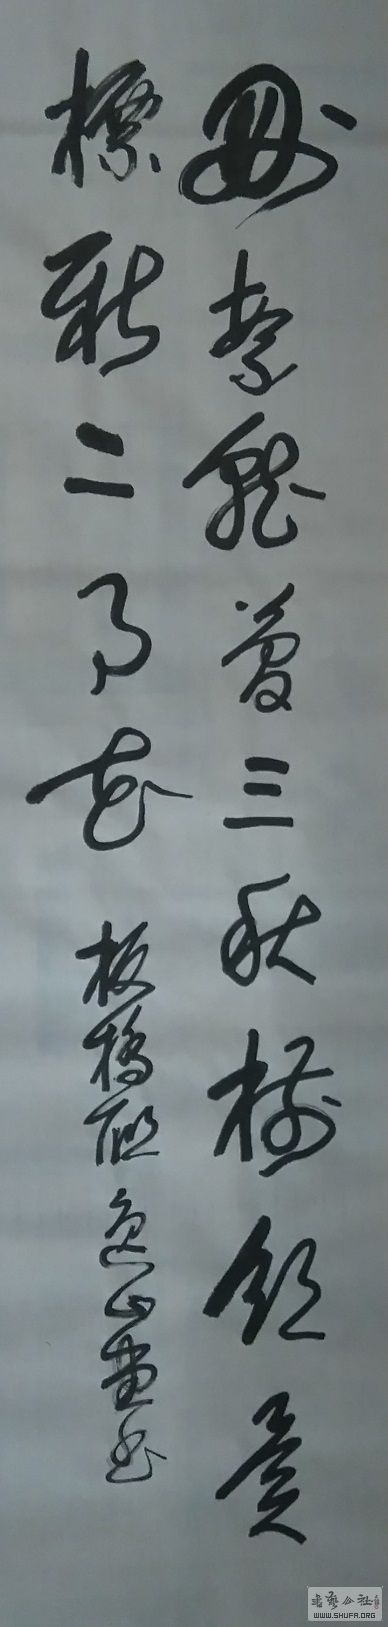 删繁就简三秋树领异
标新二月花 板桥联 逸山堂书
书艺公社
WWW.SHUFA.ORG